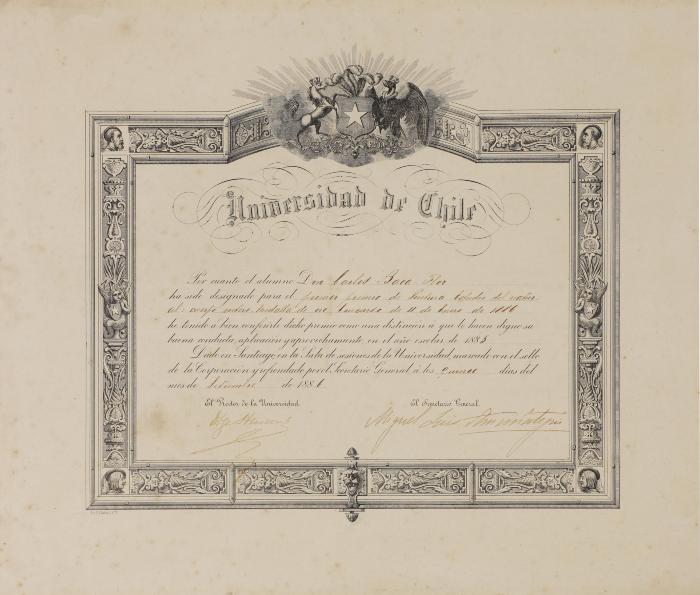 Universidad de Chile
Por cuanto el alumno Don Carlos Baca Flor
ha sido designado para el primer premio de Pintura
medalla de oro de 11 de Enero de 1886
he tenido a bien conferirle dicho premio como una distincion a que le hacen digno su
buena conducta, aplicacion y aprovechamiento en el año escolar de 1885
Dado en Santiago, en la Sala de sesiones de la Universidad, marcado con el sello
de la Corporacion y refrendado por el Secretario General a los dias del
mes de de 1886
El Rector de la Universidad. El Secretario General.
Miguel Luis Amunátegui